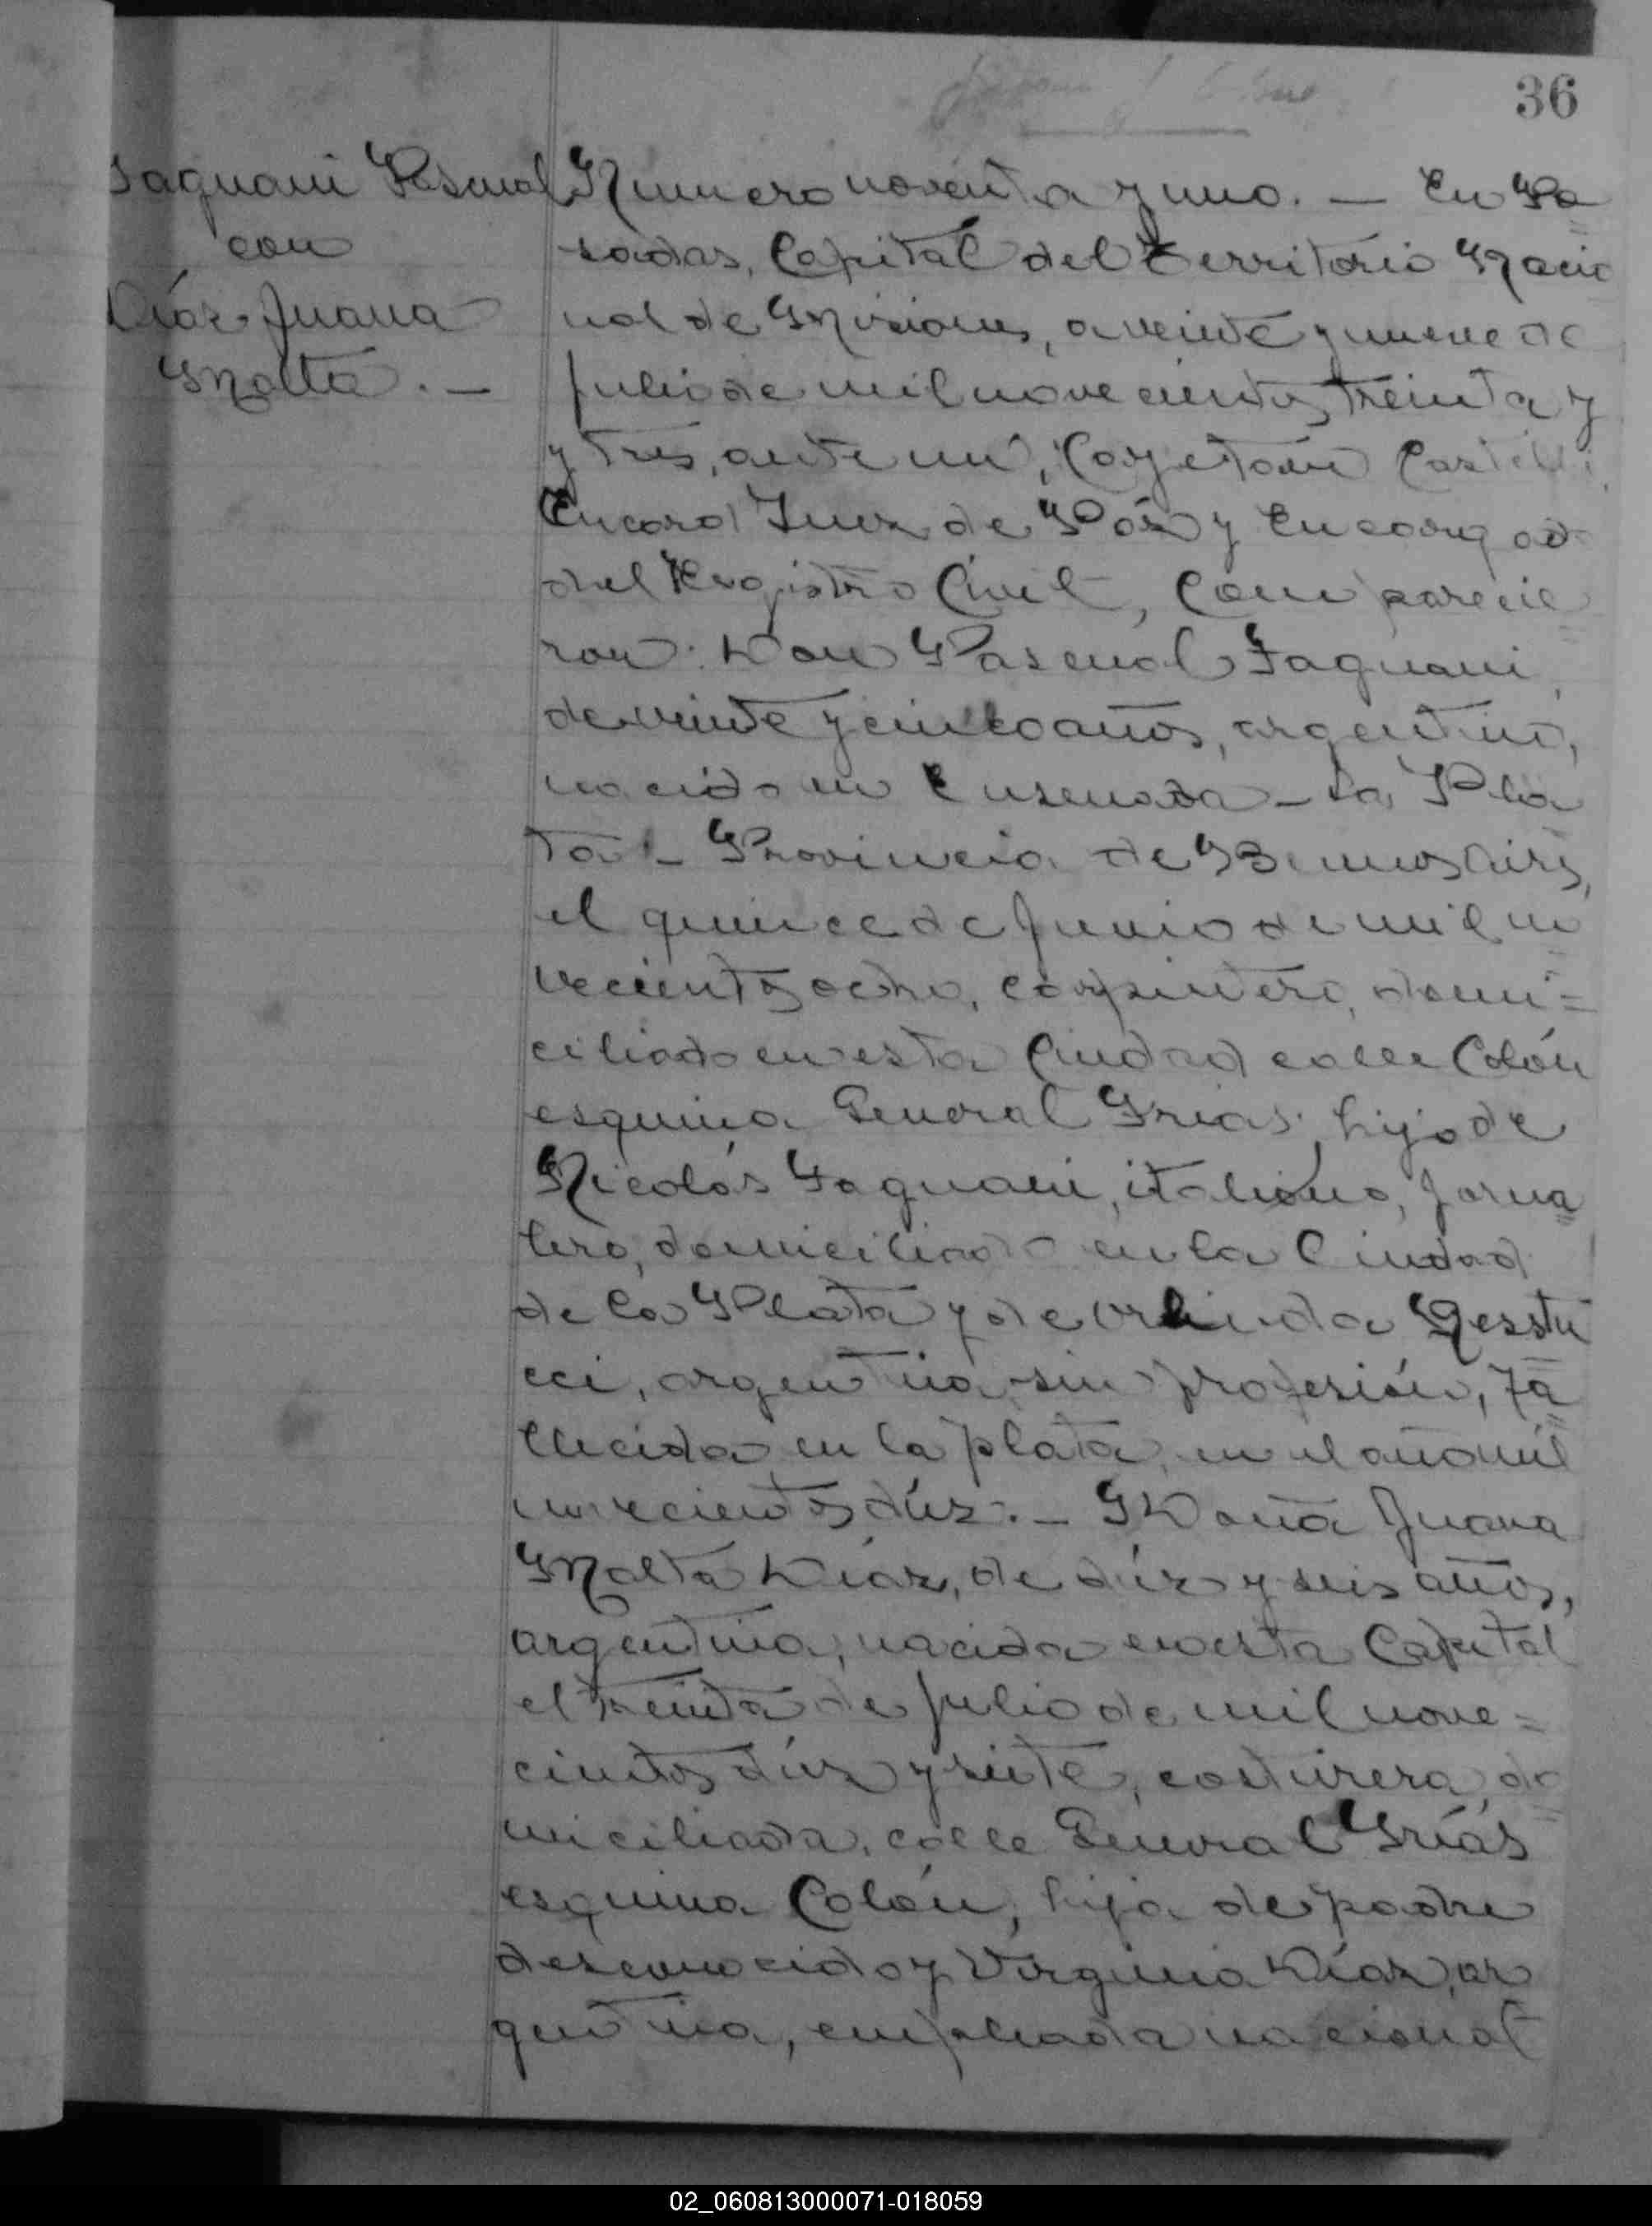 36
Faquani Pascual
con
Díaz Juana
Malta. —
Número noventa y uno. — En Po=
sadas, Capital del Territorio Nacio
nal de Misiones, a veinte y nueve de
Julio de mil novecientos treinta y
y tres, ante mí, Cayetano Castelli
Encard Juez de Paz y Encargado
del Registro Civil, Comparecie=
ron: Don Pascual Faquani,
de veinte y cinco años, argentino,
nacido en Ensenada - La Pla=
ta - Provincia de Buenos Aires,
el quince de Junio de mil no=
vecientos ocho, carpintero, domi=
ciliado en esta Ciudad calle Colón
esquina General Frias, hijo de
Nicolás Faquani, italiano, Jorna=
lero, domiciliado en la Ciudad
de La Plata y de
cci, argentina, sin profesión, fa=
llecida en la plata, en el año mil
novecientos diez. — Y Doña Juana
Malta Díaz, de diez y seis años,
argentina, nacida en esta Capital
el treinta de Julio de mil nove=
cientos diez y siete, costurera, do=
miciliada, calle General Frías
esquina Colón, hija de padre
desconocido y Virginia Díaz, ar
gentina, empleada nacional
02_060813000071-018059